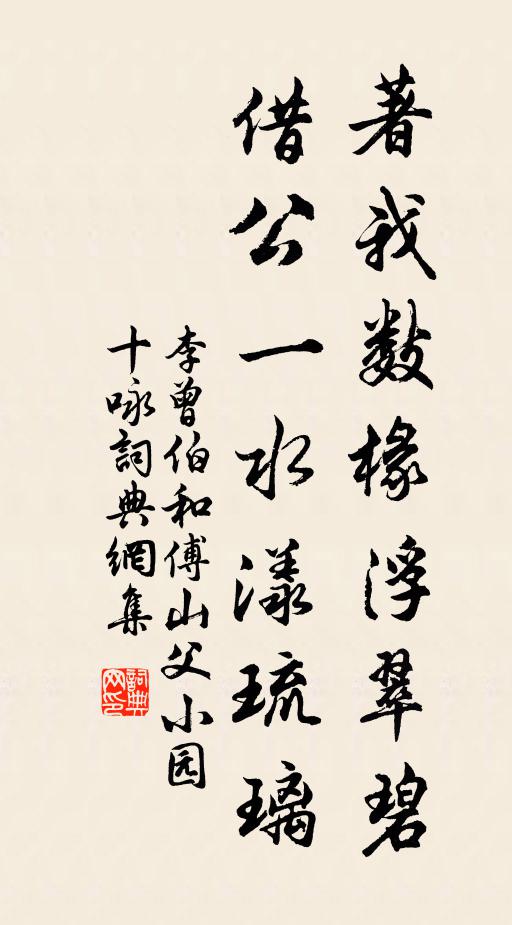 著我數椽浮翠碧
借公一水漾琉璃
李曾伯和傅山父小园
十咏詞典網集
詞典网印